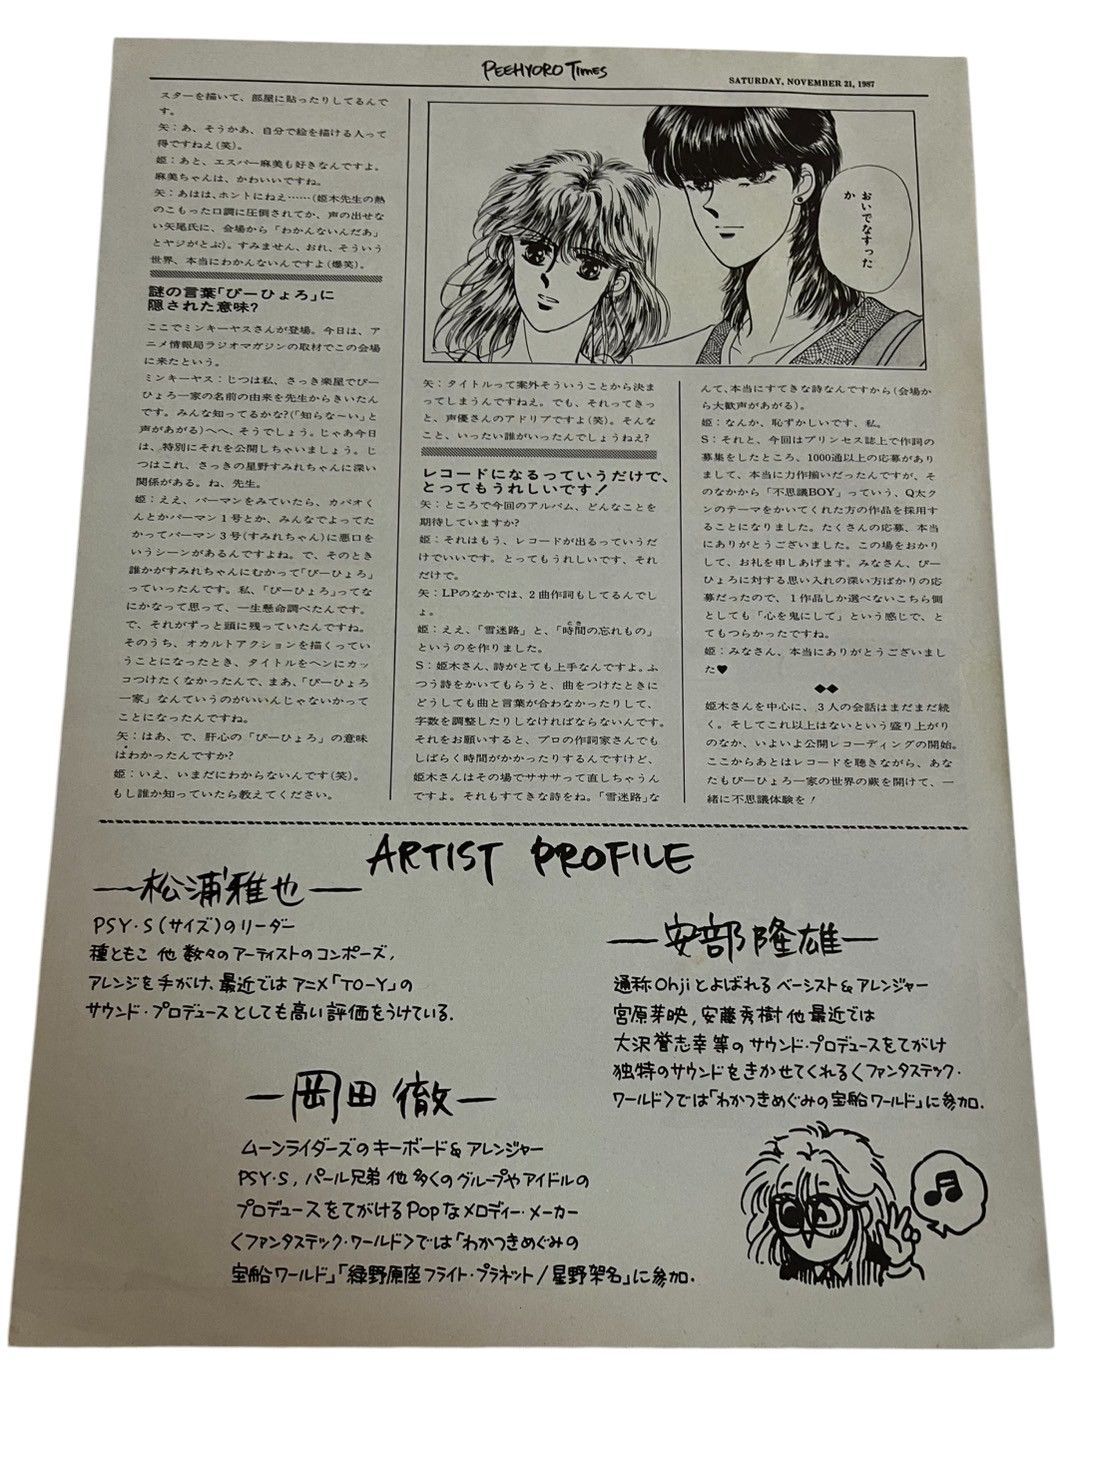 PEEHYORO TIMES
SATURDAY, NOVEMBER 21, 1987
スターを描いて、部屋に貼ったりしてるんで
す。
矢：あ、そうかあ、自分で絵を描ける人って
得ですねえ(笑)。
姫：あと、エスパー麻美も好きなんですよ。
麻美ちゃんは、かわいいですね。
矢：あはは、ホントにねえ……(姫木先生の熱
のこもった口調に圧倒されてか、声の出せな
い矢尾氏に、会場から「わかんないんだあ」
とヤジがとぶ)。すみません、おれ、そういう
世界、本当にわかんないんですよ(爆笑)。
謎の言葉「ぴーひょろ」に
隠された意味?
ここでミンキーヤスさんが登場。今日は、ア
ニメ情報局ラジオマガジンの取材でこの会場
に来たという。
ミンキーヤス：じつは私、さっき楽屋でぴー
ひょろ一家の名前の由来を先生からきいたん
です。みんな知ってるかな?(「知らな〜い」と
声があがる)へへ、そうでしょう。じゃあ今日
は、特別にそれを公開しちゃいましょう。じ
つはこれ、さっきの星野すみれちゃんに深い
関係がある。ね、先生。
姫：ええ、パーマンをみていたら、カバオく
んとかパーマン1号とか、みんなでよってた
かってパーマン3号(すみれちゃん)に悪口を
いうシーンがあるんですよね。で、そのとき
誰かがすみれちゃんにむかって「ぴーひょろ」
っていったんです。私、「ぴーひょろ」ってな
にかなって思って、一生懸命調べたんです。
で、それがずっと頭に残っていたんですね。
そのうち、オカルトアクションを描くってい
うことになったとき、タイトルをヘンにカッ
コつけたくなかったんで、まあ、「ぴーひょろ
一家」なんていうのがいいんじゃないかって
ことになったんですね。
矢：はあ、で、肝心の「ぴーひょろ」の意味
はわかったんですか?
姫：いえ、いまだにわからないんです(笑)。
もし誰か知っていたら教えてください。
おいでなすった
か
矢：タイトルって案外そういうことから決ま
ってしまうんですねえ。でも、それってきっ
と、声優さんのアドリブですよ(笑)。そんな
こと、いったい誰がいったんでしょうねえ?
レコードになるっていうだけで、
とってもうれしいです!
矢：ところで今回のアルバム、どんなことを
期待していますか?
姫：それはもう、レコードが出るっていうだ
けでいいです。とってもうれしいです、それ
だけで。
矢：LPのなかでは、2曲作詞もしてるんでし
ょ。
姫：ええ、「雪迷路」と、「時間の忘れもの」
というのを作りました。
S：姫木さん、詩がとても上手なんですよ。ふ
つう詩をかいてもらうと、曲をつけたときに
どうしても曲と言葉が合わなかったりして、
字数を調整したりしなければならないんです。
それをお願いすると、プロの作詞家さんでも
しばらく時間がかかったりするんですけど、
姫木さんはその場でサササって直しちゃうん
ですよ。それもすてきな詩をね。「雪迷路」な
んて、本当にすてきな詩なんですから(会場か
ら大歓声があがる)。
姫：なんか、恥ずかしいです、私。
S：それと、今回はプリンセス誌上で作詞の
募集をしたところ、1000通以上の応募があり
まして、本当に力作揃いだったんですが、そ
のなかから「不思議BOY」っていう、Q太ク
ンのテーマをかいてくれた方の作品を採用す
ることになりました。たくさんの応募、本当
にありがとうございました。この場をおかり
して、お礼を申しあげます。みなさん、ぴー
ひょろに対する思い入れの深い方ばかりの応
募だったので、1作品しか選べないこちら側
としても「心を鬼にして」という感じで、と
てもつらかったですね。
姫：みなさん、本当にありがとうございまし
た♥
◆◆
姫木さんを中心に、3人の会話はまだまだ続
く。そしてこれ以上はないという盛り上がり
のなか、いよいよ公開レコーディングの開始。
ここからあとはレコードを聴きながら、あな
たもぴーひょろ一家の世界の蕨を開けて、一
緒に不思議体験を！
ARTIST PROFILE
—松浦雅也—
PSY・S(サイズ)のリーダー
種ともこ 他 数々のアーティストのコンポーズ,
アレンジを手がけ、最近では アニメ「TO-Y」の
サウンド・プロデュースとしても高い評価をうけている.
—安部隆雄—
通称Ohjiとよばれる ベーシスト＆アレンジャー
宮原芽映, 安藤秀樹 他 最近では
大沢誉志幸 等の サウンド・プロデュースをてがけ
独特のサウンドをきかせてくれる〈ファンタステック・
ワールド〉では「わかつきめぐみの宝船ワールド」に参加.
—岡田 徹—
ムーンライダーズのキーボード＆アレンジャー
PSY・S, パール兄弟 他 多くのグループやアイドルの
プロデュースをてがけるPopなメロディー・メーカー
〈ファンタステック・ワールド〉では「わかつきめぐみの
宝船ワールド」「緑野原座フライト・プラネット/星野架名」に参加.